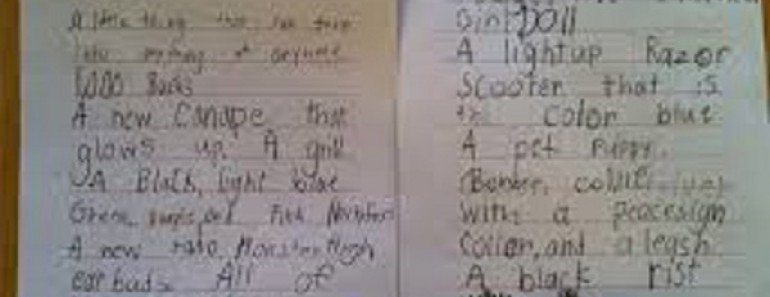 A little thing that can turn
into anything or anyone
1,000 Bucks
A new Canape that
glows up. A grill
A Black, light blue
Green, purple, and Pink
A new Monster High
ear buds. All of
Doll
A light up Razor
Scooter that is
the color blue
A pet Puppy.
(Border, collie
with a peacesign
Coller, and a leash
A black rist